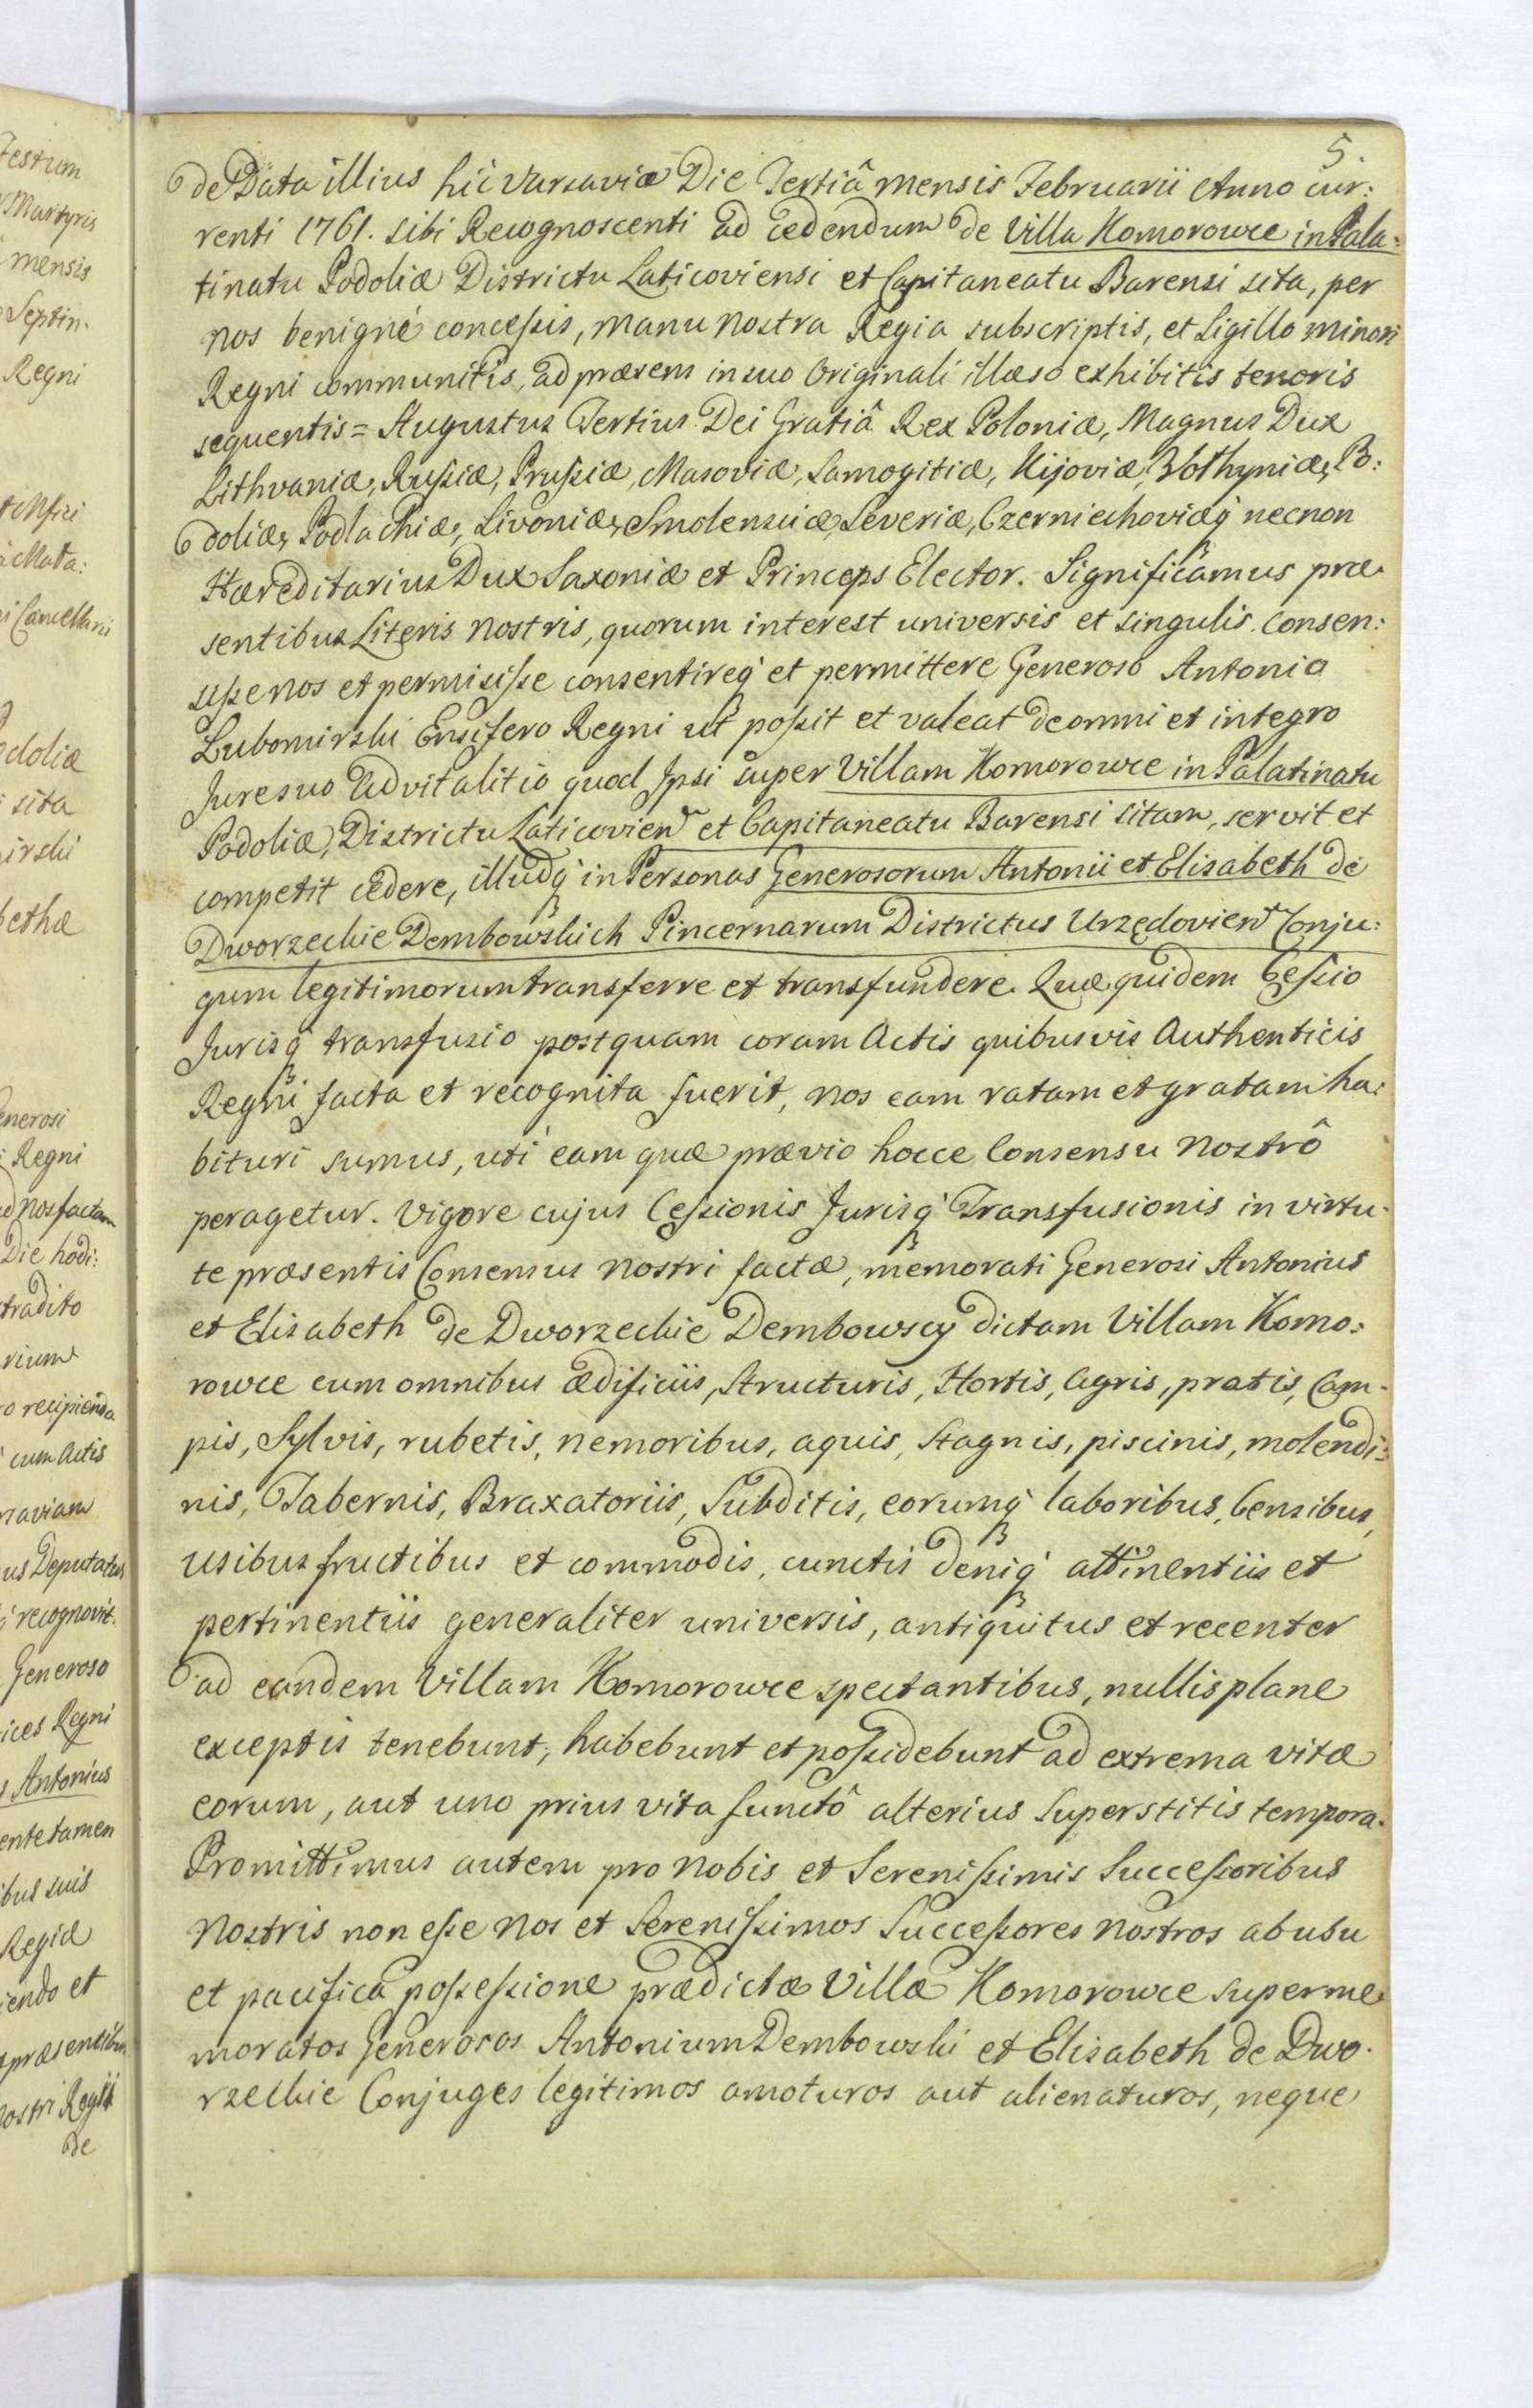 Festum
Martyris
mensis
Septin.
Regni
Mata:
Cancellarii
odoliæ
sita
irski
bethæ
enerosi
Regni
ad nos factam
Die hodi:
tradito
rium
o recipienda
cum Actis
rsaviam
us Deputatus
recognovit.
Generoso
ices Regni
s Antonius
ente tamen
ibus suis
Regiæ
iendo et
præsentibus
nostri Regii
De
5.
de Data illius hic Varsaviæ Die Tertiâ mensis Februarii Anno cur:
renti 1761. sibi Recognoscenti ad cedendum de Villa Komorowce in Pala:
tinatu Podoliæ Districtu Laticoviensi et Capitaneatu Barensi sita, per
nos benigné concessis, manu nostra Regia subscriptis, et Sigillo minori
Regni communitis, ad præsens in suo Originali illæso exhibitis tenoris
sequentis = Augustus Tertius Dei Gratiâ Rex Poloniæ, Magnus Dux
Lithvaniæ, Russiæ, Prussiæ, Masoviæ, Samogitiæ, Kijoviæ, Wolhyniæ, Po:
doliæ, Podlachiæ, Livoniæ, Smolensciæ, Severiæ, Czerniechoviæq necnon
Hæreditarius Dux Saxoniæ et Princeps Elector. Significamus præ-
sentibus Literis nostris, quorum interest universis et singulis. Consen:
sisse nos et permisisse consentireq et permittere Generoso Antonio
Lubomirski Ensifero Regni ut possit et valeat de omni et integro
Jure suo Advitalitio quod Ipsi super Villam Komorowce in Palatinatu
Podoliæ, Districtu Laticovien et Capitaneatu Barensi sitam, servit et
competit cedere, illudq in Personas Generosorum Antonii et Elisabeth de
Dworzeckie Dembowskich Pincernarum Districtus Urzędovien Conju:
gum legitimorum transferre et transfundere. Quæ quidem Cessio
Jurisq transfusio postquam coram Actis quibusvis Authenticis
Regni facta et recognita fuerit, nos eam ratam et gratam ha:
bituri sumus, uti eam quæ prævio hocce Consensu nostrô
peragetur. Vigore cujus Cessionis Jurisq Transfusionis in virtu-
te præsentis Consensus nostri factæ, memorati Generosi Antonius
et Elisabeth de Dworzeckie Dembowscy dictam Villam Komo:
rowce cum omnibus ædificiis, Structuris, Hortis, Agris, pratis, Cam-
pis, Sylvis, rubetis, nemoribus, aquis, Stagnis, piscinis, molendi:
nis, Tabernis, Braxatoriis, Subditis, eorumq laboribus, Censibus,
usibus fructibus et commodis, cunctis deniq attinentiis et
pertinentiis generaliter universis, antiquitus et recenter
ad eandem Villam Komorowce spectantibus, nullis plane
exceptis tenebunt, habebunt et possidebunt ad extrema vitæ
eorum, aut uno prius vita functô alterius Superstitis tempora.
Promittimus autem pro nobis et Serenissimis Successoribus
nostris non esse nos et Serenissimos Successores nostros ab usu
et pacifica possessione prædictæ Villæ Komorowce superme-
moratos Generosos Antonium Dembowski et Elisabeth de Dwo-
rzeckie Conjuges legitimos amoturos aut alienaturos, neque